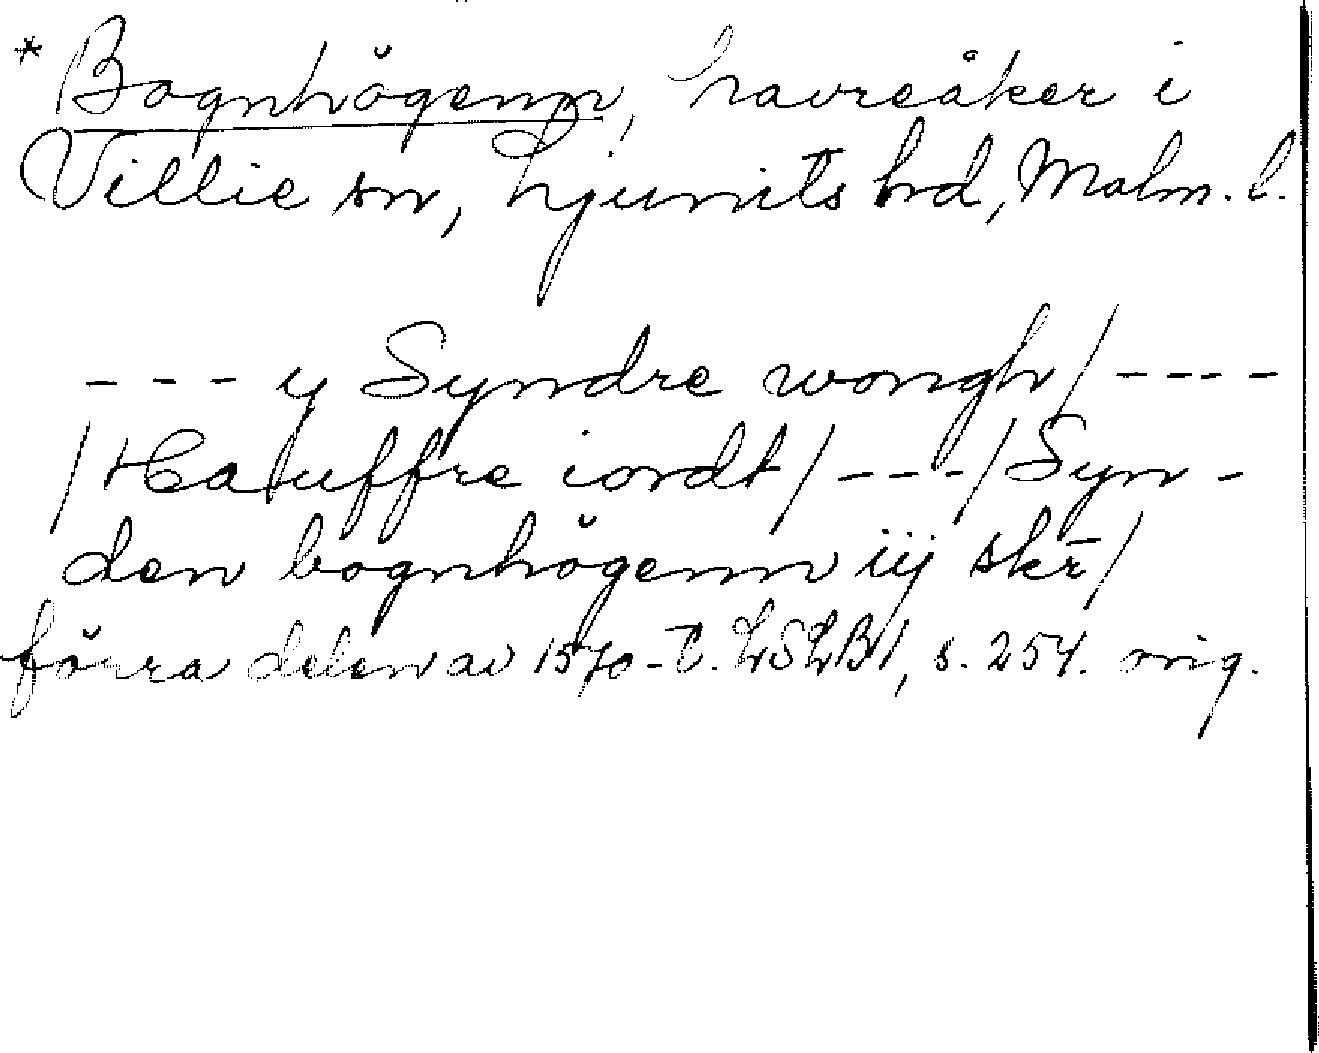 * Bognhögenn, havreåker i
Villie sn, Ljunits hd, Malm. l.
- - - y Syndre wongh/ - - - -
/Hauffre iordt/ - - - /Syn-
den bognhögenn iij skr̄/
förra delen av 1570-t. LSLB1, s. 254. orig.